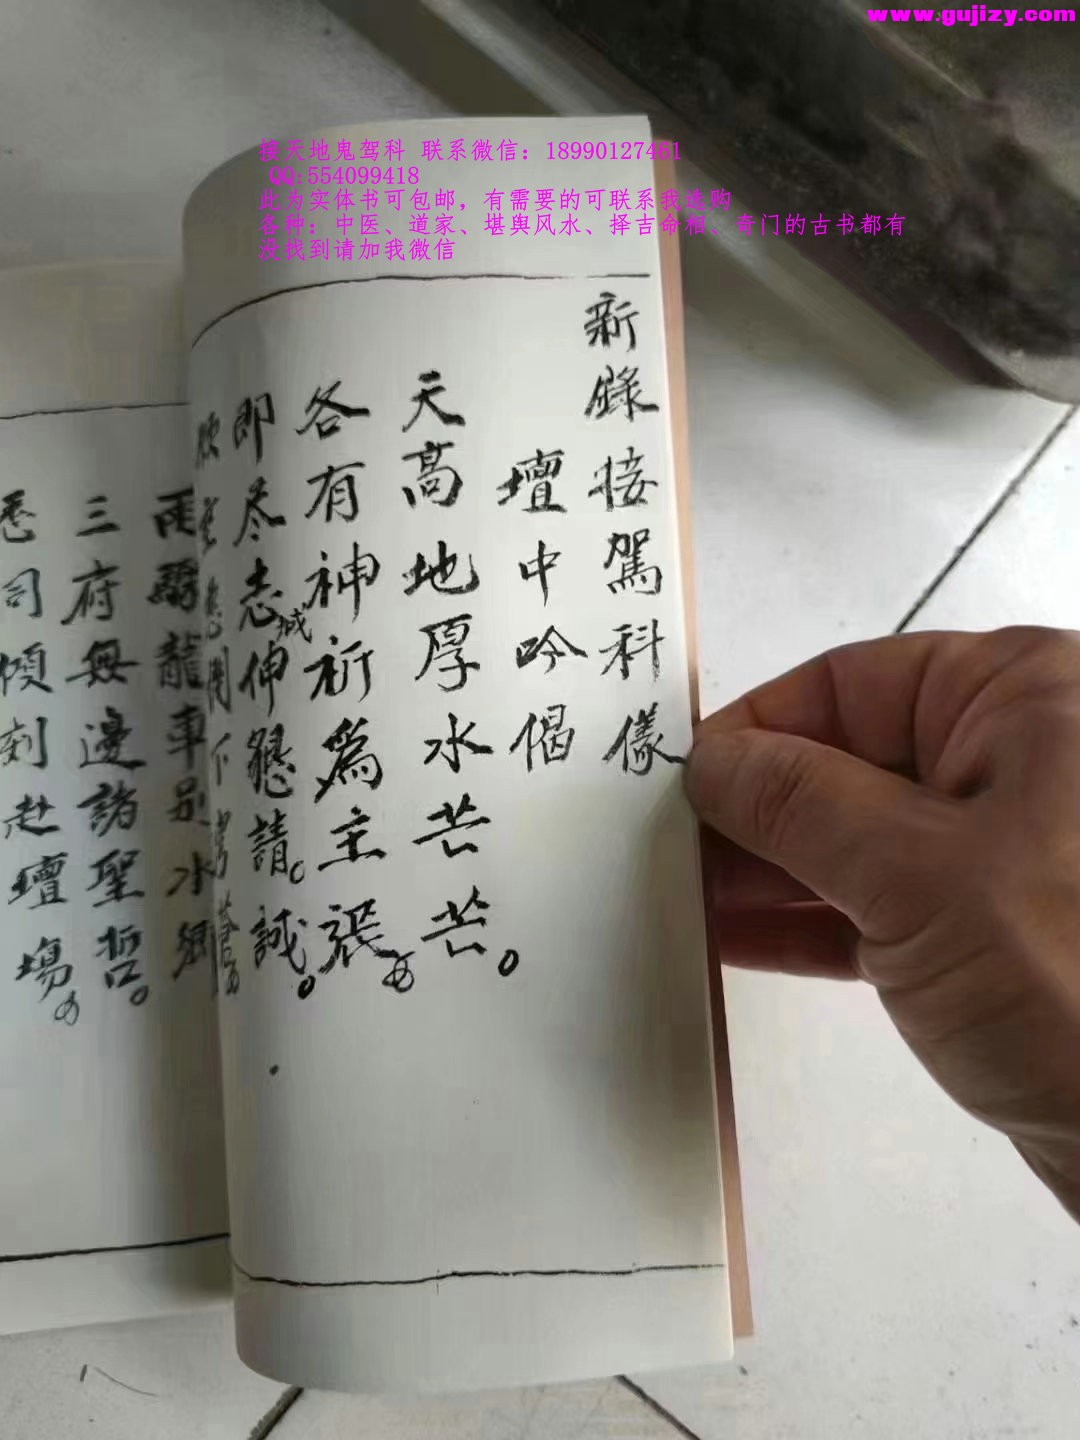 www.gujizy.com
接天地鬼驾科 联系微信：18990127461
QQ:554099418
此为实体书可包邮，有需要的可联系我选购
各种：中医、道家、堪舆风水、择吉命相、奇门的古书都有
没找到请加我微信
新錄接駕科儀
壇中吟偈
天高地厚水芒芒。
各有神祈為主張
即尽志誠伸懇請。誠。
雨驟龍車別水鄉
三府無邊諸聖哲。
悉司傾刻赴壇場